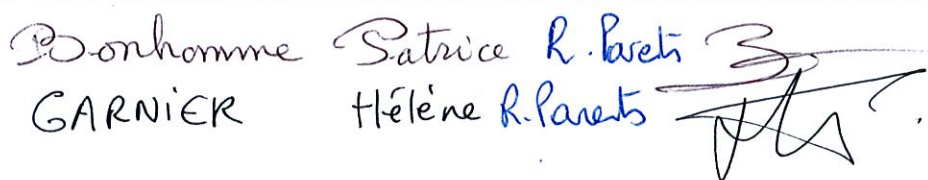 Bonhomme Patrice R. Parets
GARNIER Hélène R. Parents